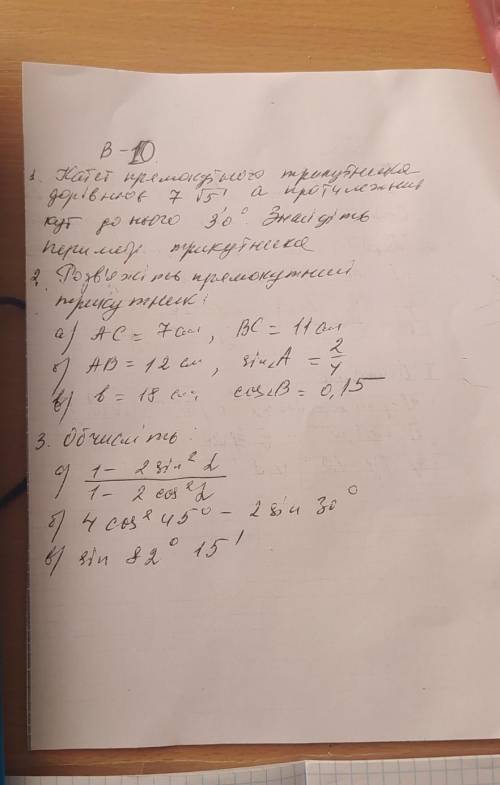 В-10
1. Катет прямокутного трикутника
дорівнює 7√5 а протилежний
кут до нього 30° Знайдіть
периметр трикутника
2. Розв'яжіть прямокутний
трикутник:
а) AC = 7см, BC = 11см
б) AB = 12 см, sin∠A = 2/4
в) b = 18 см, cos∠B = 0,15
3. Обчисліть:
а) 1 - 2 sin² α / 1 - 2 cos² α
б) 4 cos² 45° - 2 sin 30°
в) sin 82° 15'